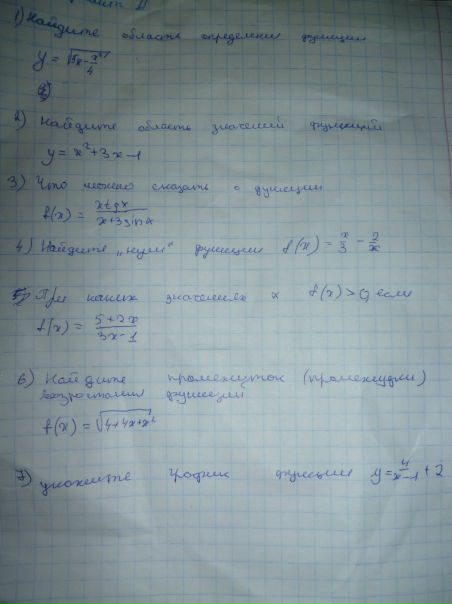 1) Найдите область определения функции
y = √(5x - x²/4)
2) Найдите область значений функций
y = x² + 3x - 1
3) Что можно сказать о функции
f(x) = xtgx / x+3sinx
4) Найдите „нули“ функции f(x) = x/3 - 2/x
5) При каких значениях x f(x) > 0, если
f(x) = 5+2x / 3x-1
6) Найдите промежуток (промежутки)
возростания функции
f(x) = √(4+4x+x²)
7) укажите график функции y = 4/x-1 + 2